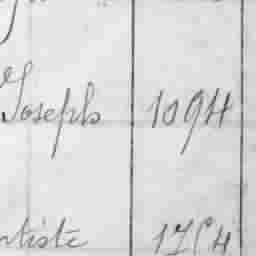 Joseph 1094
ntiste